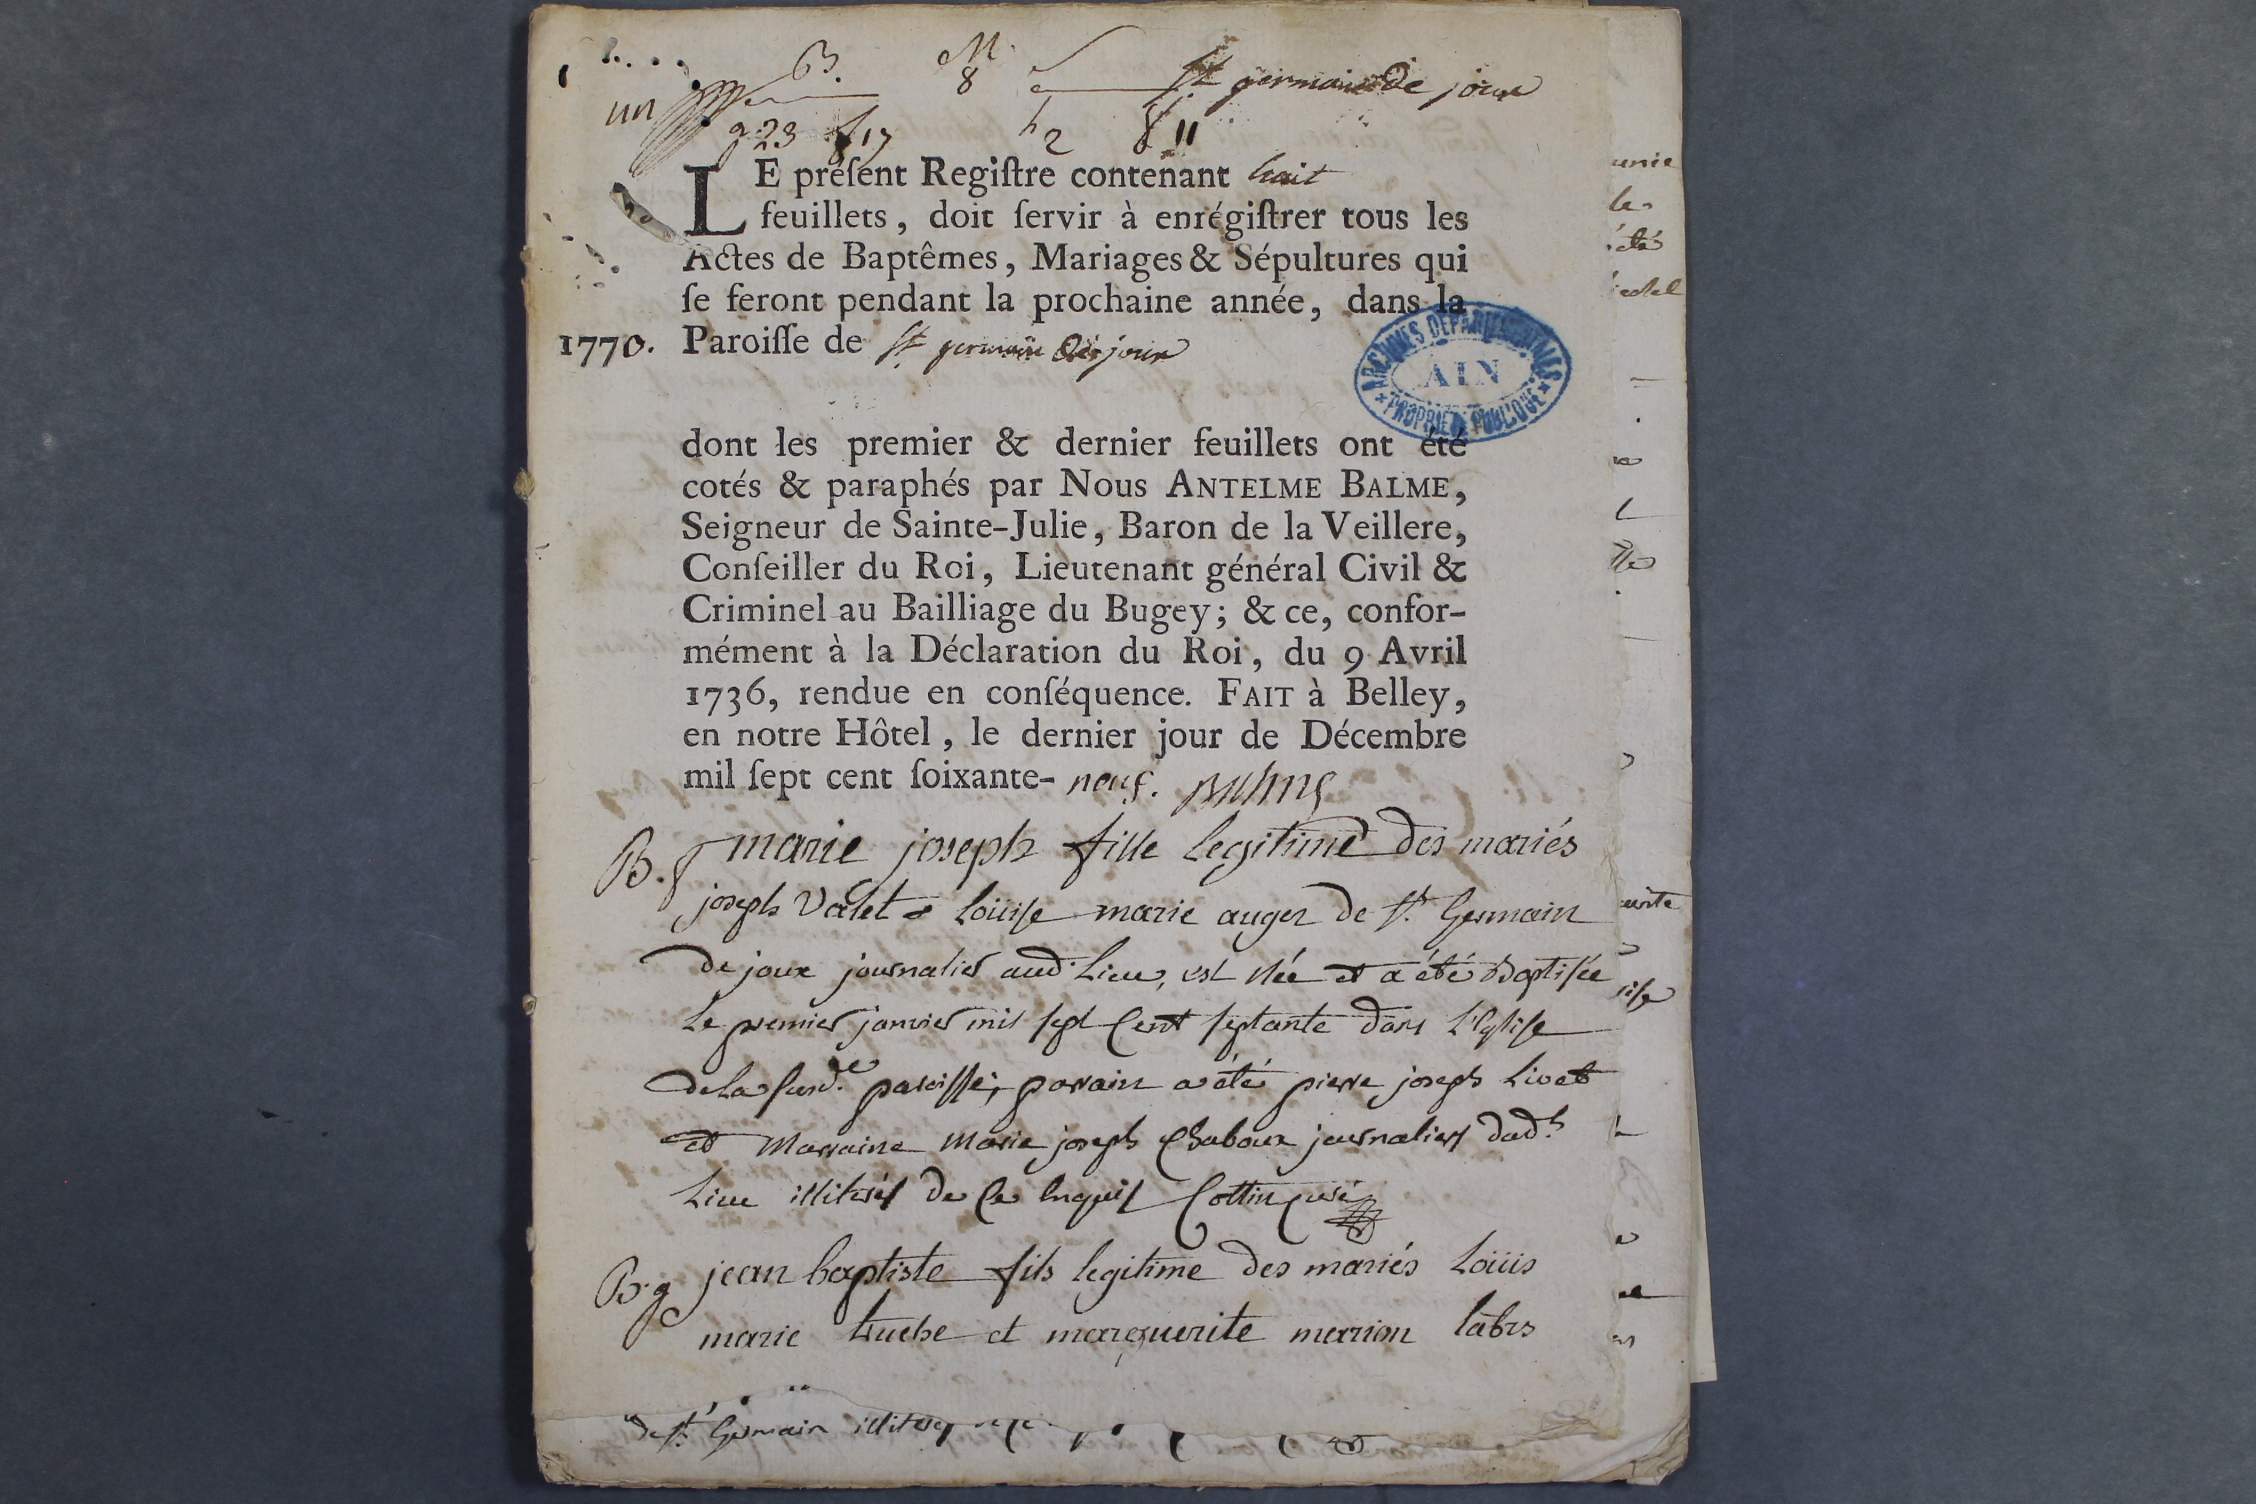 B. M. St germain De joux
8
un
g 23 f 17 h 2 f 11
LE préſent Regiſtre contenant huit
feuillets, doit ſervir à enrégiſtrer tous les
Actes de Baptêmes, Mariages & Sépultures qui
ſe feront pendant la prochaine année, dans la
1770. Paroiſſe de St germain De joux
ARCHIVES DÉPARTEMENTALES
AIN
PROPRIÉTÉ PUBLIQUE
dont les premier & dernier feuillets ont été
cotés & paraphés par Nous ANTELME BALME,
Seigneur de Sainte-Julie, Baron de la Veillere,
Conſeiller du Roi, Lieutenant général Civil &
Criminel au Bailliage du Bugey; & ce, confor-
mément à la Déclaration du Roi, du 9 Avril
1736, rendue en conſéquence. FAIT à Belley,
en notre Hôtel, le dernier jour de Décembre
mil ſept cent ſoixante- neuf. Balme
B. f marie joseph fille legitime des mariés
joseph Valet & loüise marie auger de St. Germain
de joux journalier aud. Lieu, est née et a été Baptisée
Le premier janvier mil sept Cent septante dans L'Eglise
de la susd.e paroisse, parrain a été pierre joseph Livet
et Marraine Marie joseph Chaboux journaliers dud.t
Lieu illiterés de Ce Enquis Cottin Curé
B. g jean baptiste fils legitime des mariés Loüis
marie et marguerite marion labrs
de St. Germain illiterés